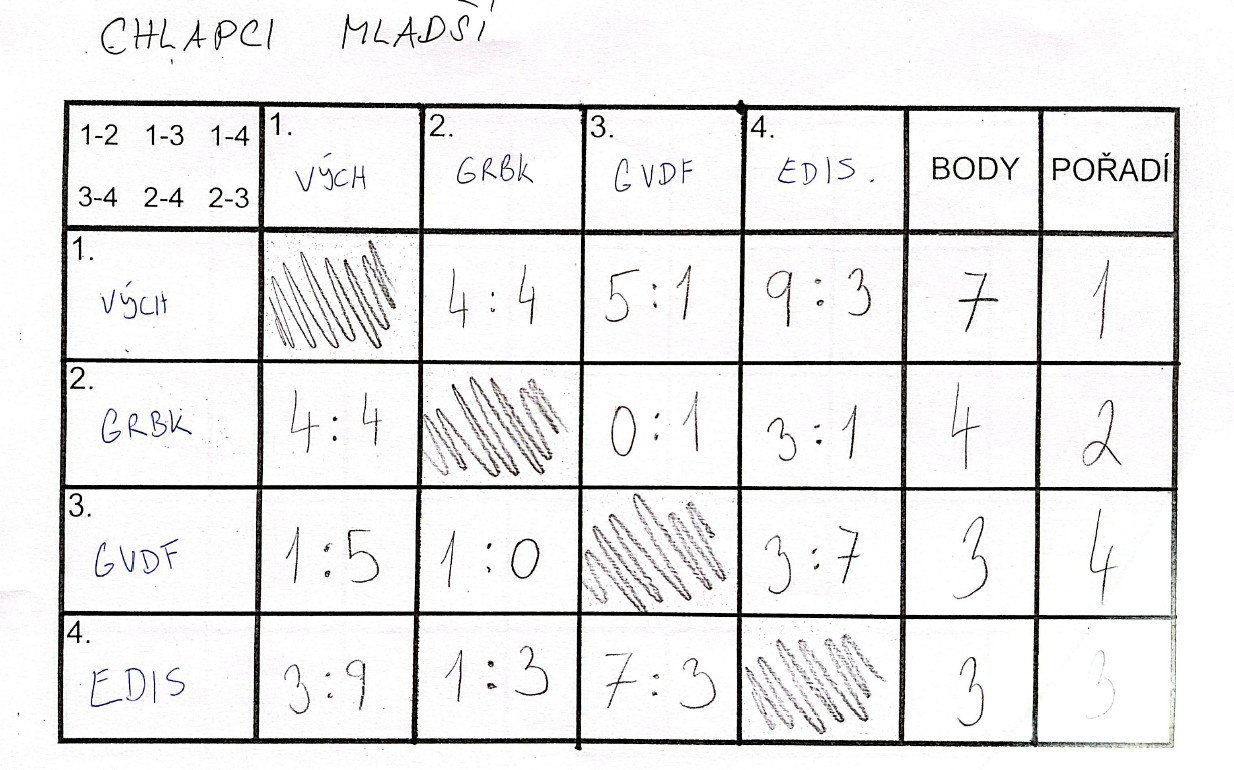 CHLAPCI MLADŠÍ
1-2 1-3 1-4 1. 2. 3. 4.
VÝCH GRBK GVDF EDIS. BODY POŘADÍ
3-4 2-4 2-3
1.
VÝCH 4:4 5:1 9:3 7 1
2.
GRBK 4:4 0:1 3:1 4 2
3.
GVDF 1:5 1:0 3:7 3 4
4.
EDIS 3:9 1:3 7:3 3 3